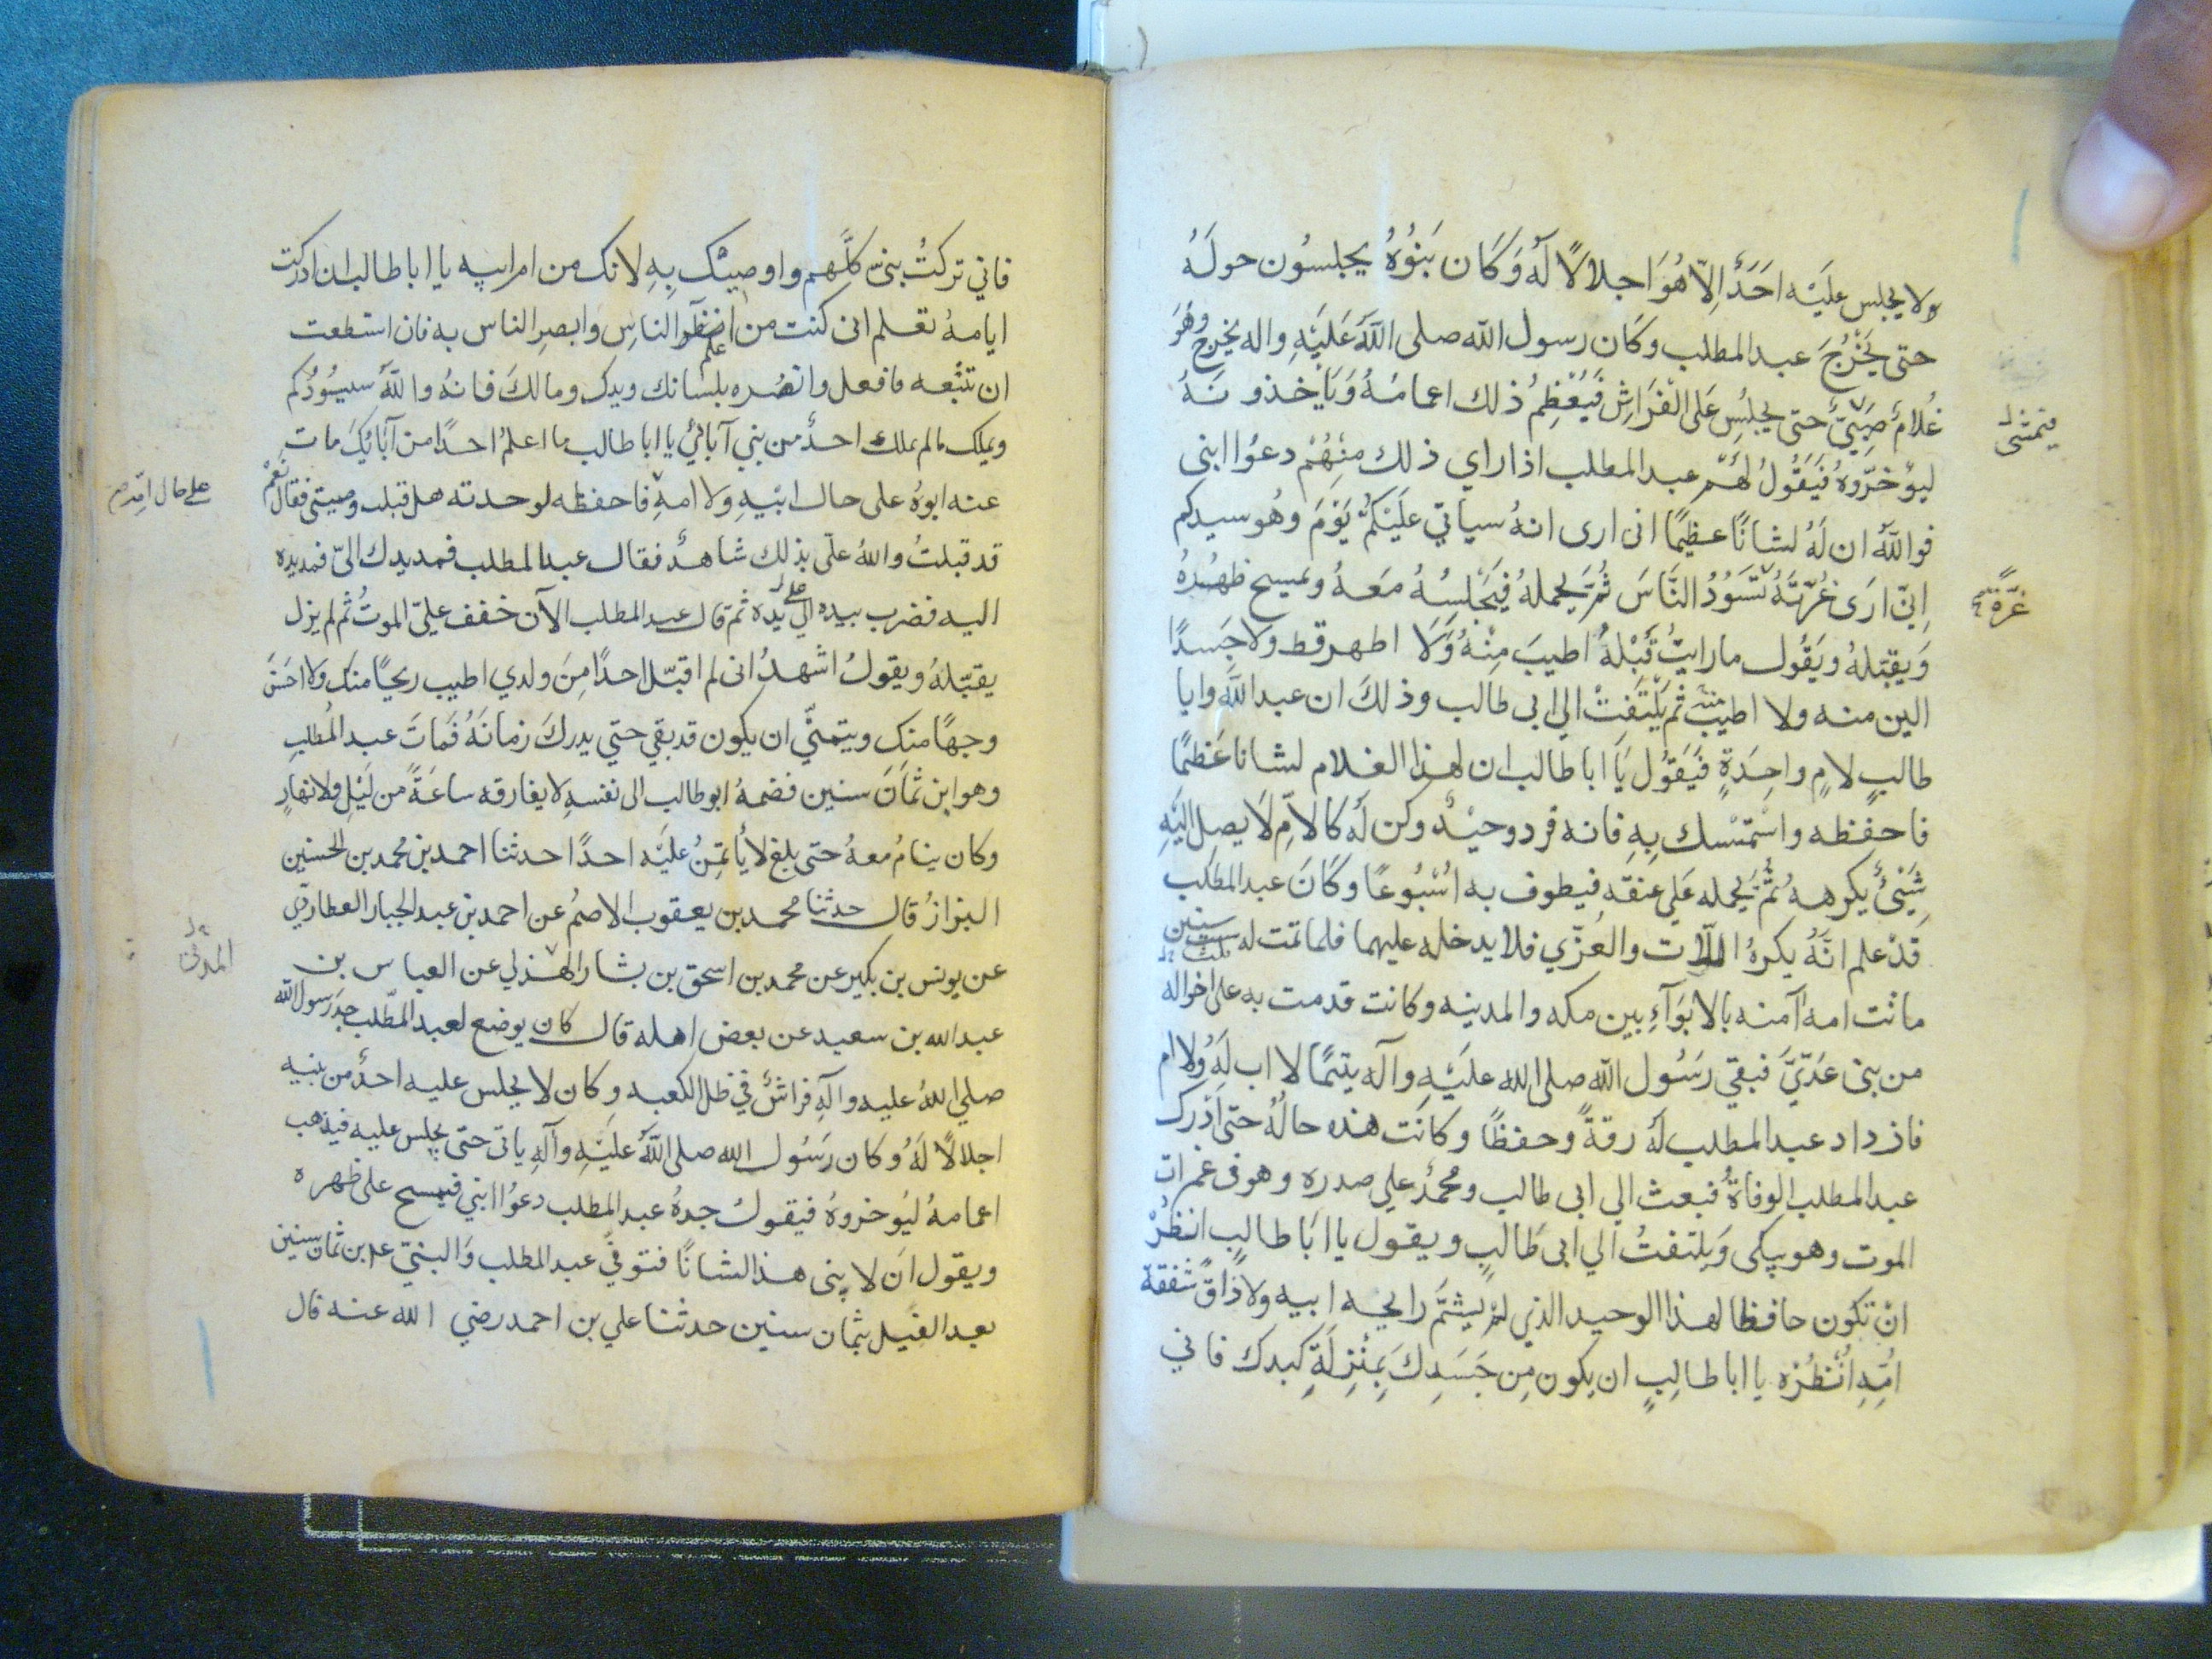 ولا يجلس عليه احد الّا هو اجلالاً له وكان بنوه يجلسون حوله
حتى يخرج عبد المطلب وكان رسول الله صلى الله عليه واله يخرج وهو
غلام صبيّ حتى يجلس على الفراش فيعظم ذلك اعمامه وياخذونه
فيتمشى
ليؤخروه فيقول لهم عبد المطلب اذا راي ذلك منهم دعوا ابنى
فوالله ان له لشانا عظيما انى ارى انه سياتي عليكم يوم وهو سيدكم
اني ارى غرّته تسود الناس ثم يحمله فيجلسه معه ويمسح ظهره
غرّة
ويقبله ويقول مارايت قبلة اطيب منه ولا اطهر قط ولا جسدا
الين منه ولا اطيب ثم يلتفت الي ابى طالب وذلك ان عبد الله وابا
طالب لام واحدة فيقول يا ابا طالب ان لهذا الغلام لشانا عظيما
فاحفظه واستمسك به فانه فرد وحيد وكن له كالام لا يصل اليه
شيئ يكرهه ثم يحمله على عنقه فيطوف به اسبوعا وكان عبد المطلب
قد علم انه يكره اللات والعزّي فلا يدخله عليهما فلما تمت له ست سنين
ماتت امه آمنه بالابوآء بين مكه والمدينه وكانت قدمت به على اخواله
من بنى عديّ فبقي رسول الله صلى الله عليه وآله يتيما لا اب له ولا ام
فازداد عبد المطلب له رقة وحفظا وكانت هذه حاله حتى ادرك
عبد المطلب الوفاة فبعث الي ابى طالب ومحمد على صدره وهو فى غمرات
الموت وهو يبكى ويلتفت الي ابى طالب ويقول يا ابا طالب انظر
ان تكون حافظا لهذا الوحيد الذي لم يشمّ رايحه ابيه ولا ذاق شفقة
امّه انظره يا ابا طالب ان يكون من جسدك بمنزلة كبدك فاني
فاني تركت بنىّ كلهم واوصيتك به لانك من ام ابيه يا ابا طالب ان ادركت
ايامه تعلم انى كنت من الناس وابصر الناس به فان استطعت
علم
ان تتبعه فافعل وانصره بلسانك ويدك ومالك فانه والله سيسودكم
ويملك مالم يملك احد من بني آبائي يا ابا طالب ما اعلم احدا من آبائك مات
عنه ابوه على حال ابيه ولا امه فاحفظه لوحدته هل قبلت وصيتى فقال نعم
على حال امه
قد قبلت والله علىّ بذلك شاهد فقال عبد المطلب فمد يدك الىّ فمد يده
اليه فضرب بيده الي يده ثم قال عبد المطلب الآن خفف علىّ الموت ثم لم يزل
على
يقبّله ويقول اشهد انى لم اقبّل احدا من ولدي اطيب ريحا منك ولا احسن
وجها منك ويتمنّي ان يكون قد بقي حتي يدرك زمانه فمات عبد المطلب
وهو ابن ثمان سنين فضمه ابو طالب الى نفسه لا يفارقه ساعة من ليل ولا نهار
وكان ينام معه حتى بلغ لا ياتمن عليه احدا حدثنا احمد بن محمد بن الحسين
البزاز قال حدثنا محمد بن يعقوب الاصم عن احمد بن عبد الجبار العطاردي
عن يونس بن بكير عن محمد بن اسحق بن بشار الهذلي عن العباس بن
المدنى
عبد الله بن سعيد عن بعض اهله قال كان يوضع لعبد المطّلب جد رسول الله
صلي الله عليه وآله فراش في ظل الكعبه وكان لا يجلس عليه احد من بنيه
اجلالا له وكان رسول الله صلى الله عليه وآله ياتى حتى يجلس عليه فيذهب
اعمامه ليؤخروه فيقول جده عبد المطلب دعوا ابني فيمسح على ظهره
ويقول ان لابنى هذا لشانا فتوفي عبد المطلب والنبيّ ابن ثمان سنين
بعد الفيل بثمان سنين حدثنا علي بن احمد رضي الله عنه قال